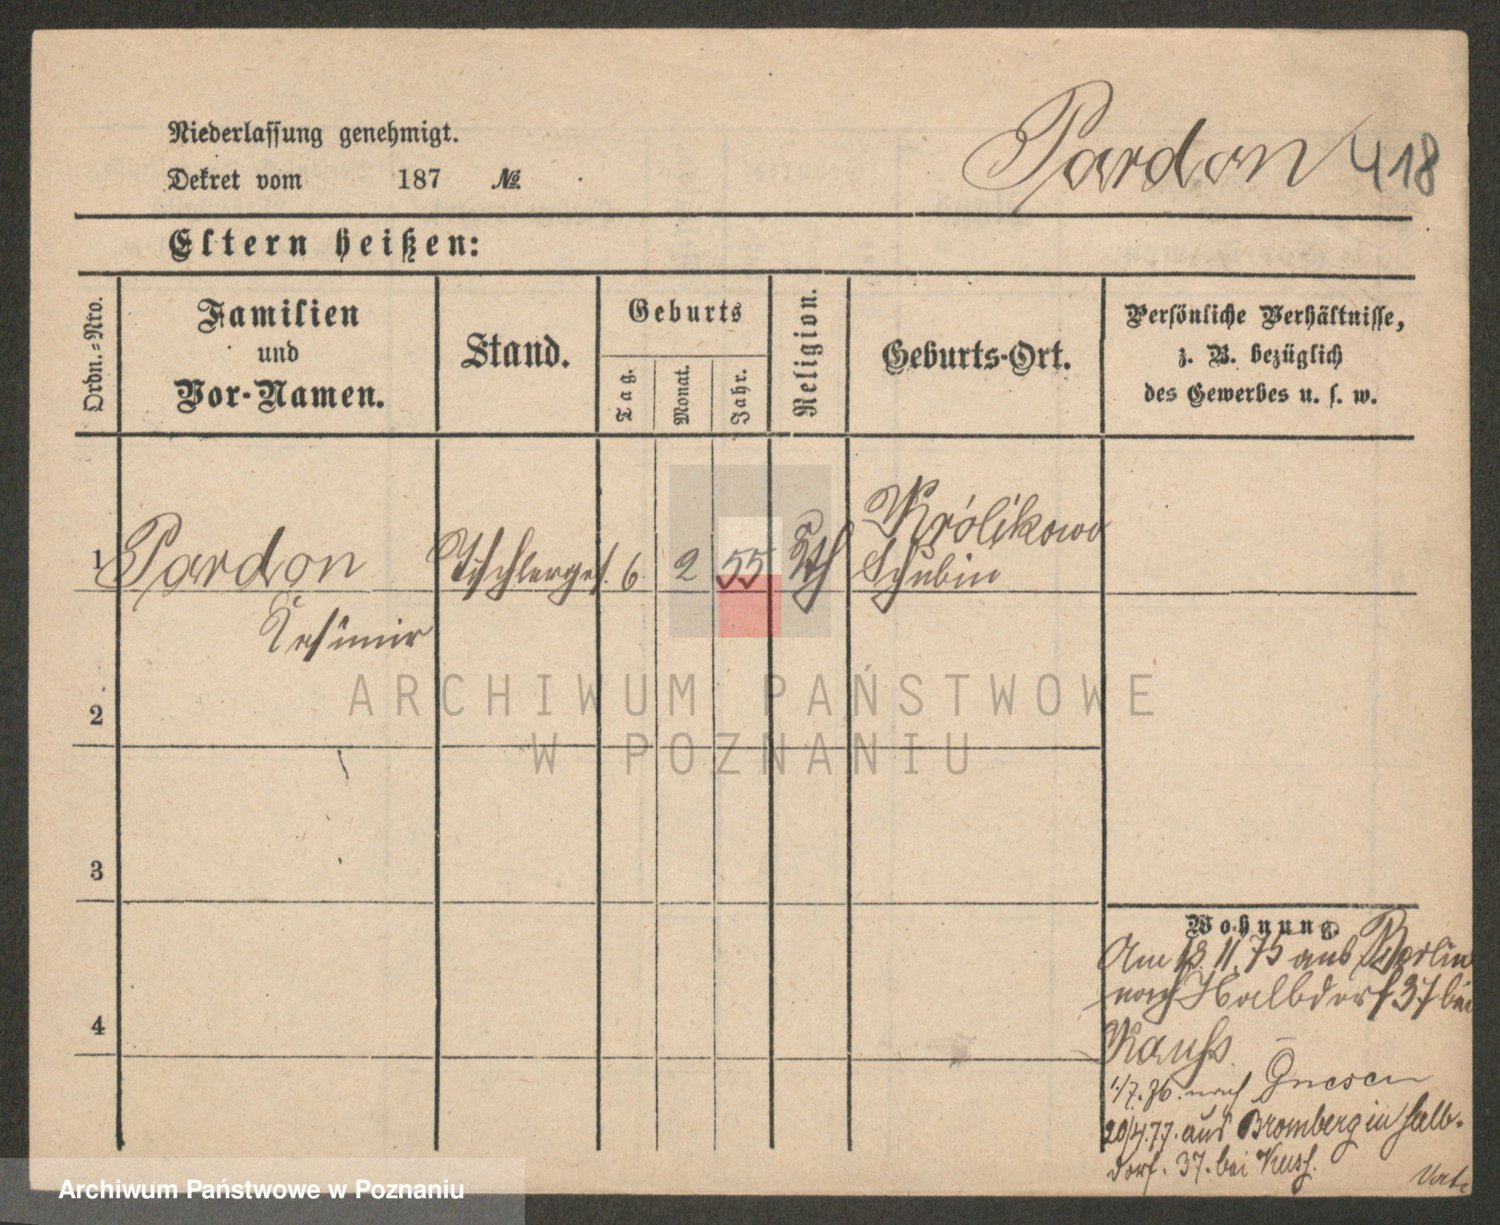 Niederlassung genehmigt.
Dekret vom 187 №
Pardon 418
Eltern heißen:
Ordn.=Nro.
Familien
und
Vor-Namen.
Stand.
Geburts
Tag.
Monat.
Jahr.
Religion.
Geburts-Ort.
Persönliche Verhältnisse,
z. B. bezüglich
des Gewerbes u. s. w.
1 Pardon Tischlerges. 6 2 55 kth Królikowo
Schubin
Kasimir
2
3
4
Wohnung.
Am 13 11. 75 aus Berlin
nach Halbdorf 37 bei
1/7. 76. nach Gnesen
20/4. 77. aus Bromberg in Halb-
dorf. 37. bei
ARCHIWUM PAŃSTWOWE
W POZNANIU
Archiwum Państwowe w Poznaniu